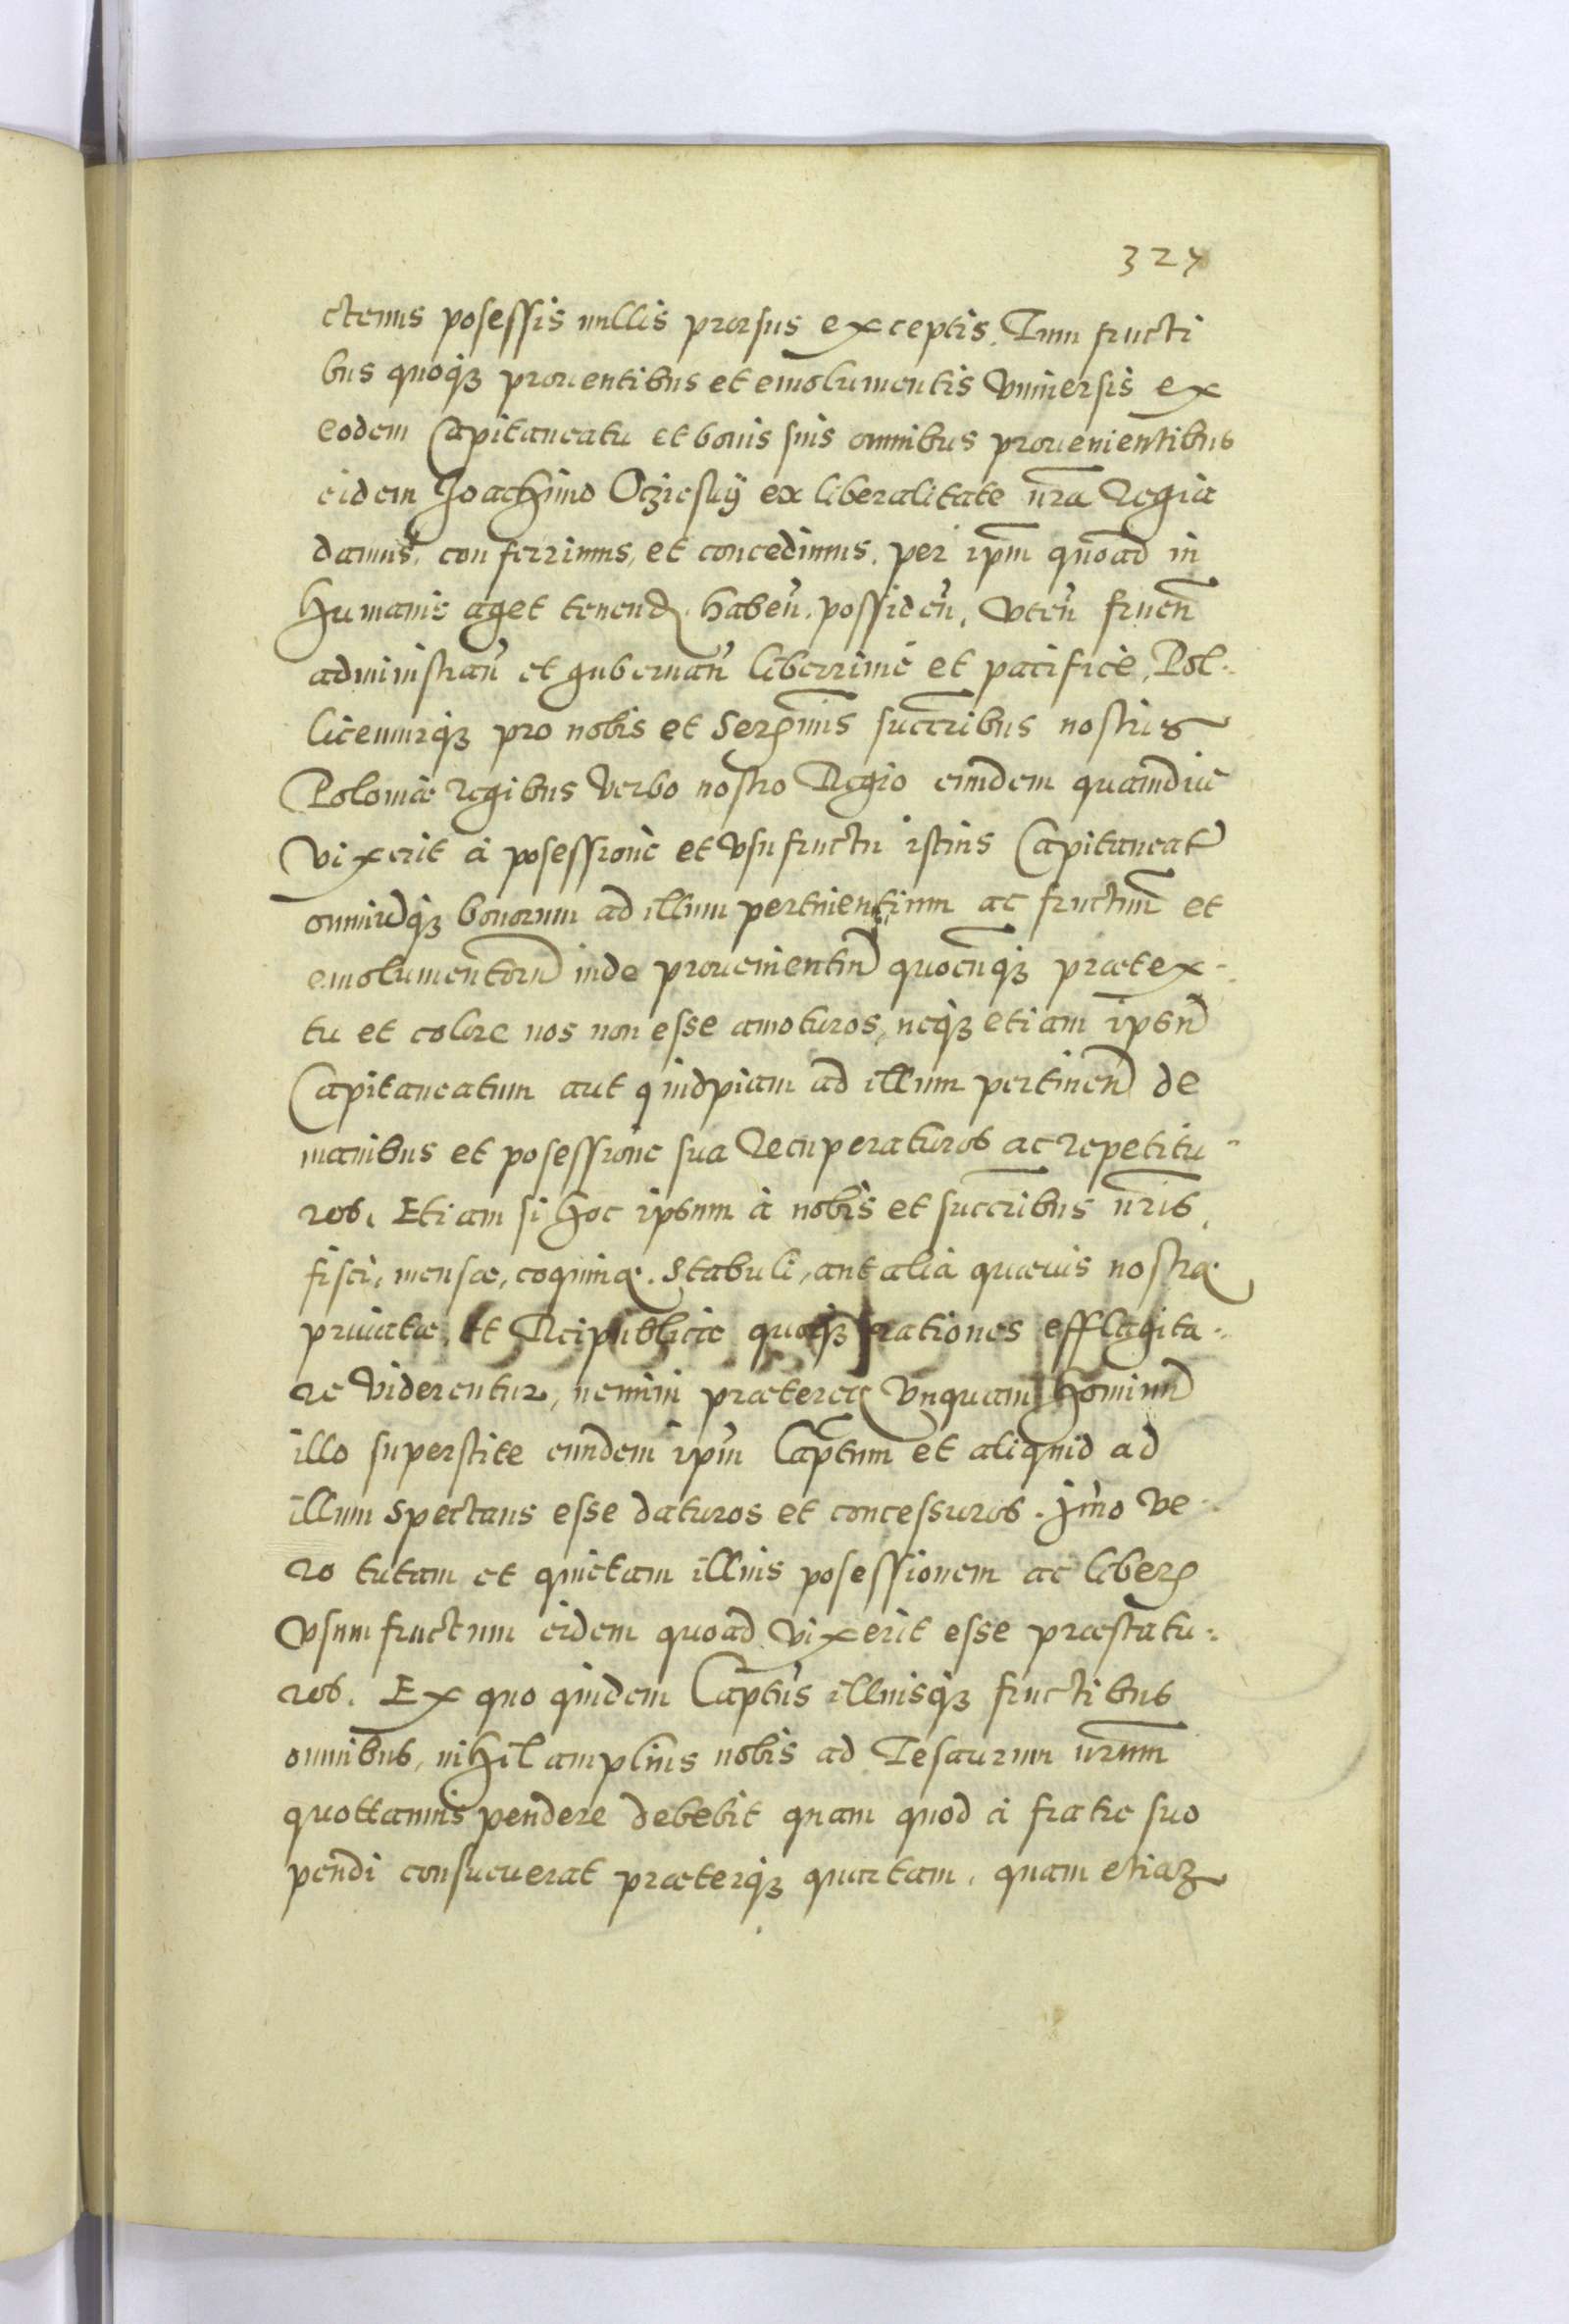 327
ctenus posessis nullis prorsus exceptis. Tum fructi
bus quoqꝫ prouentibus et emolumentis vniuersis ex
eodem Capitaneatu et bonis suis omnibus prouenientibus
eidem Joachimo Ocziesky ex liberalitate nr̃a Regia
damus, conferrimus, et concedimus. per ip̃m quoad in
humanis aget tenend. haben̄. possiden̄, vten̄ fruen̄
administran̄ et gubernan̄ liberrimè et pacificè, Pol-
licemurqꝫ pro nobis et Seren̄mis succ̄ribus nostris
Poloniæ Regibus Verbo nostro Regio eundem quamdiu
Vixerit à posessione et vsufructu istius Capitaneat9
omniuqꝫ bonorum ad illum pertinentium ac fructuum̄ et
emolumentorū inde prouenientiū quocunqꝫ prætex-
tu et colore nos non esse amoturos, neqꝫ etiam ipsū
Capitaneatum aut quidpiam ad illum pertinen̄ de
manibus et posessione sua Recuperaturos ac repetitu-
ros. Etiam si hoc ipsum à nobis et succ̄ribus nr̄is,
fisci, mensæ, coquinę. Stabuli, aut alia quæuis nostrę
priuatæ, et Reipublicæ quoqꝫ rationes efflagita-
re viderentur, nemini præterea vnquam hominū
illo superstite eundem ip̄m Capt̄um et aliquid ad
illum spectans esse daturos et concessuros. Jm̄o ve-
ro tutam et quietam illius posessionem ac liber
vsumfructum eidem quoad vixerit esse præstatu-
ros. Ex quo quidem Capt̄us illiusqꝫ fructibus
omnibus, nihil amplius nobis ad Tesaurum nr̄um
quottannis pendere debebit quam quod à fratre suo
pendi consueuerat præterqꝫ quartam, quam etiaꝫ